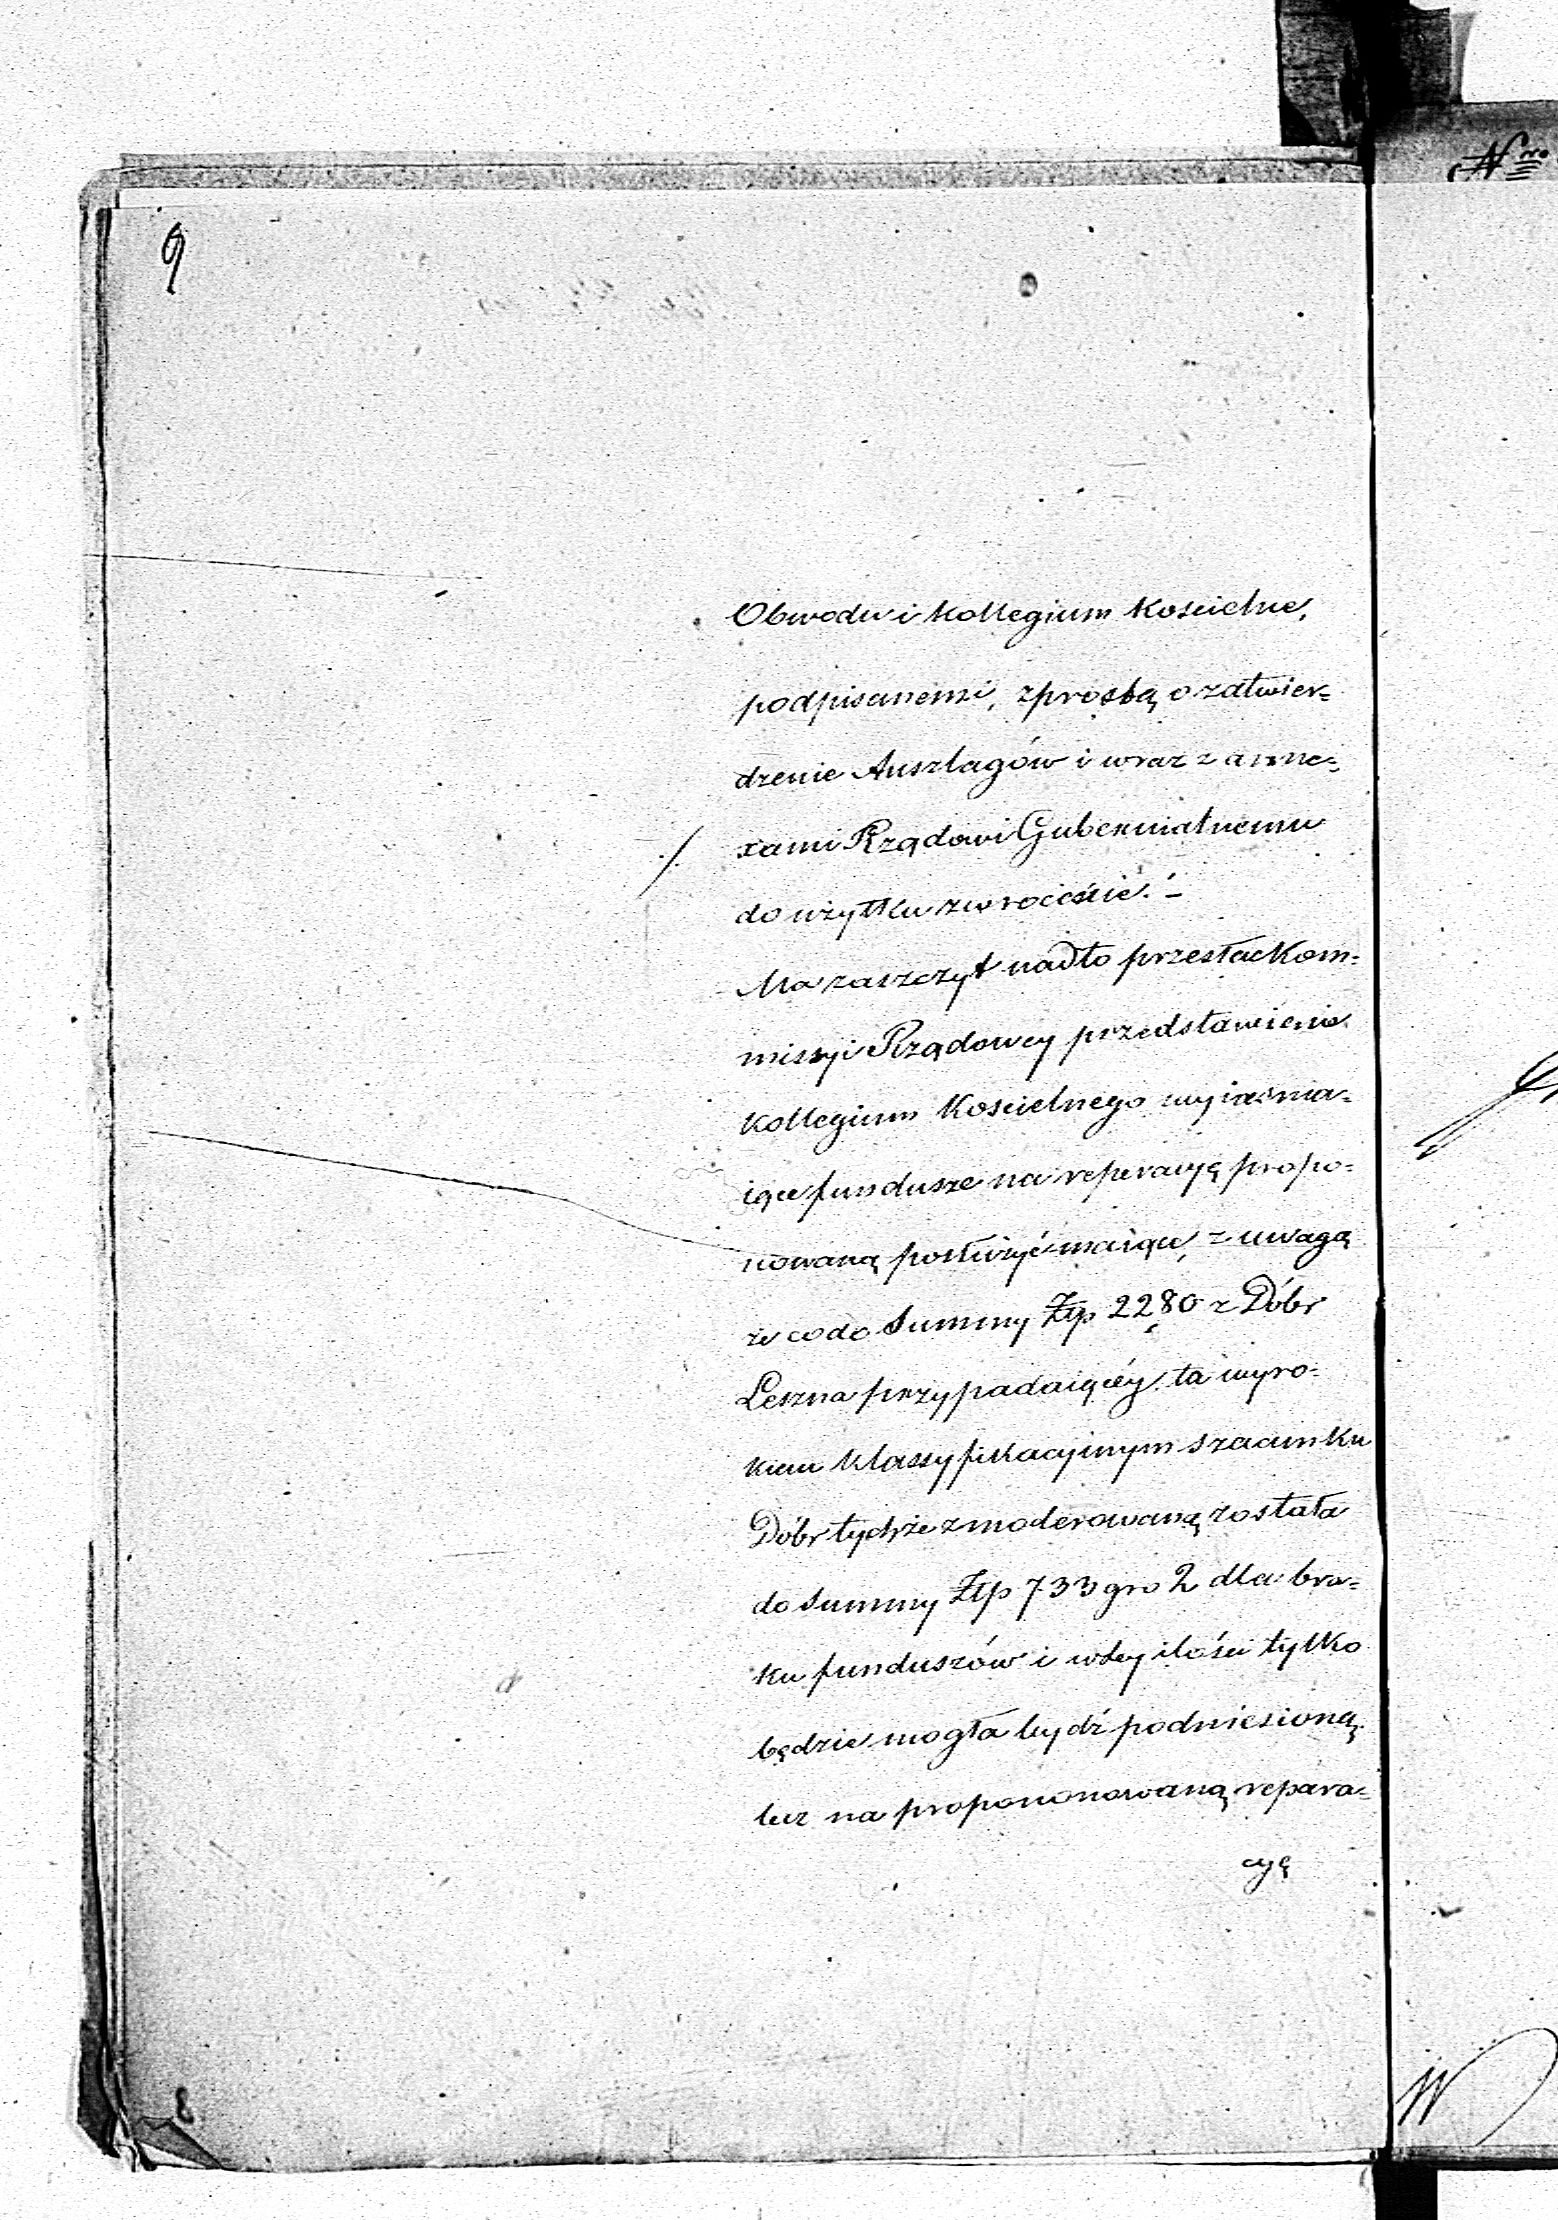 9
Nro
Obwodu i Kollegium Kościelne,
podpisanemi, z prosbą o zatwier=
dzenie Anszlagów i wraz z anne=
xami Rządowi Gubernialnemu
do użytku zwrócenie. –
Ma zaszczyt nadto przesłać Kom=
missyi Rządowey przedstawienie
Kollegium Kościelnego wyiaśnia=
iące fundusze na reperacyę propo=
nowaną posłużyć maiące, z uwagą
że co do Summy Złp 2280 z Dóbr
Leszna przypadaiącéy ta wyro=
kiem klassyfikacyinym szacunku
Dóbr tychże zmoderowaną została
do Summy Złp 733 gro 2 dla bra=
ku funduszów i w tey ilości tylko
będzie mogła bydź podniesioną
lecz na proponowaną repara=
cyę